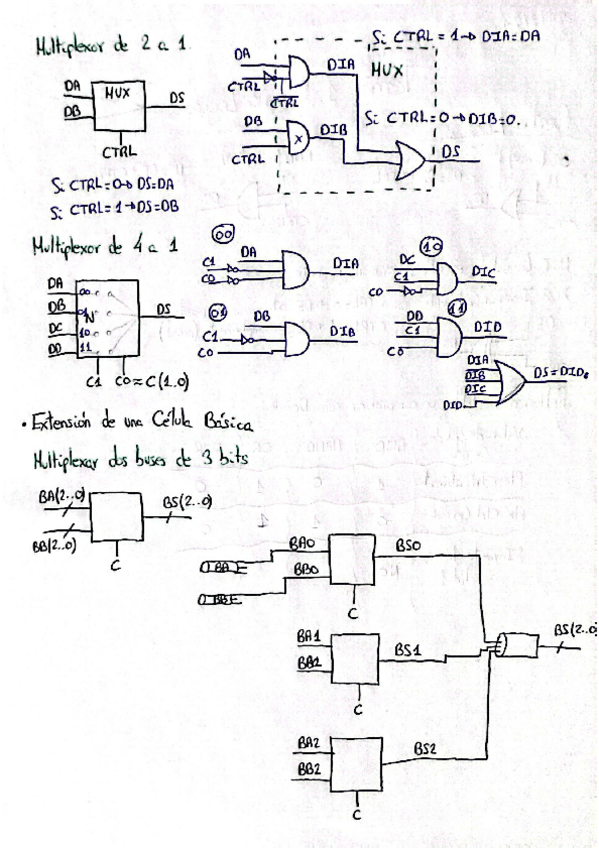 Multiplexor de 2 a 1.
Si CTRL = 1 → DIA = DA
DA
DB
MUX
DS
CTRL
DA
CTRL
CTRL
DIA
MUX
Si CTRL = 0 → DIB = 0.
DB
X
DIB
CTRL
DS
Si CTRL = 0 → DS = DA
Si CTRL = 1 → DS = DB
Multiplexor de 4 a 1
DA
DB
DC
DD
00
01
10
11
DS
C1
C0 ≈ C(1..0)
00
DA
C1
C0
DIA
10
DC
C1
C0
DIC
01
DB
C1
C0
DIB
11
DD
C1
C0
DID
DIA
DIB
DIC
DID
• Extensión de una Célula Básica
Multiplexar dos buses de 3 bits
BA(2..0)
BB(2..0)
BS(2..0)
C
BA
BB
BA0
BB0
BS0
C
BA1
BB1
BS1
C
BS(2..0)
BA2
BB2
BS2
C